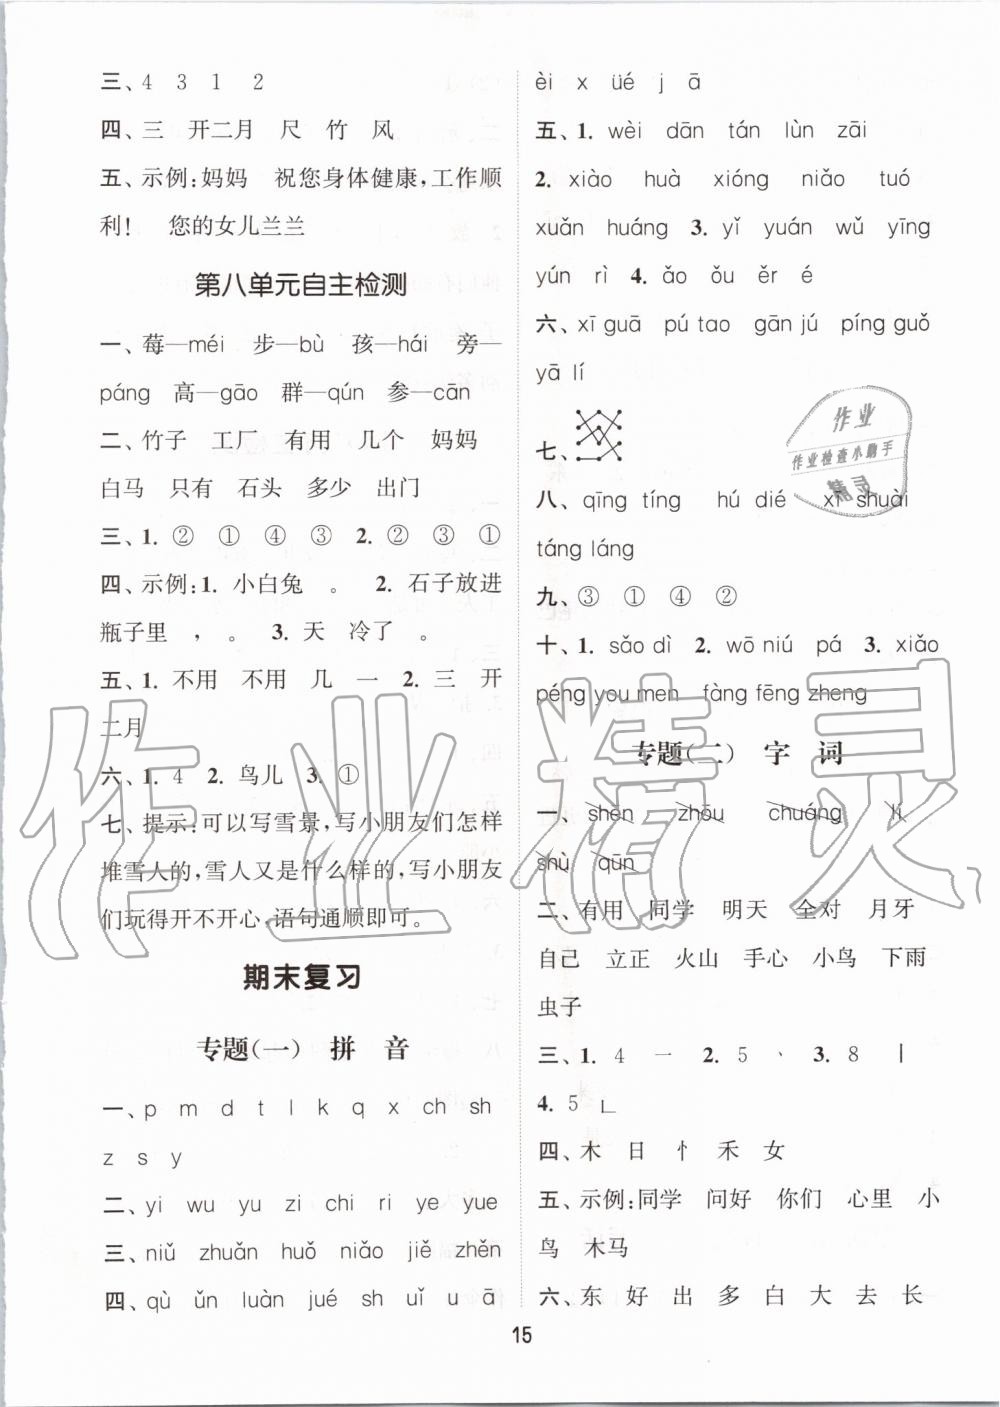 三、4 3 1 2
四、三 开二月 尺 竹 风
五、示例:妈妈 祝您身体健康,工作顺
利! 您的女儿兰兰
第八单元自主检测
一、莓—méi 步—bù 孩—hái 旁—
páng 高—gāo 群—qún 参—cān
二、竹子 工厂 有用 几个 妈妈
白马 只有 石头 多少 出门
三、1. ② ① ④ ③ 2. ② ③ ①
四、示例:1. 小白兔 。 2. 石子放进
瓶子里 , 。 3. 天 冷了 。
五、1. 不用 不用 几 一 2. 三 开
二月
六、1. 4 2. 鸟儿 3. ①
七、提示:可以写雪景,写小朋友们怎样
堆雪人的,雪人又是什么样的,写小朋友
们玩得开不开心,语句通顺即可。
期末复习
专题(一) 拼 音
一、p m d t l k q x ch sh
z s y
二、yi wu yu zi chi ri ye yue
三、niǔ zhuǎn huǒ niǎo jiě zhěn
四、qù ǔn luàn jué sh uǐ u ā
èi x üé j ā
五、1. wèi dān tán lùn zāi
2. xiào huà xióng niǎo tuó
xuǎn huáng 3. yǐ yuán wǔ yīng
yún rì 4. ǎo ǒu ěr é
六、xī guā pú tao gān jú píng guǒ
yā lí
七、
八、qīng tíng hú dié xī shuài
táng láng
九、③ ① ④ ②
十、1. sǎo dì 2. wō niú pá 3. xiǎo
péng you men fàng fēng zheng
专题(二) 字 词
一、shēn zhōu chuáng lí
shù qūn
二、有用 同学 明天 全对 月牙
自己 立正 火山 手心 小鸟 下雨
虫子
三、1. 4 一 2. 5 丶 3. 8 丨
4. 5 ㇗
四、木 日 忄 禾 女
五、示例:同学 问好 你们 心里 小
鸟 木马
六、东 好 出 多 白 大 去 长
15
作业
作业检查小助手
精灵
作业精灵